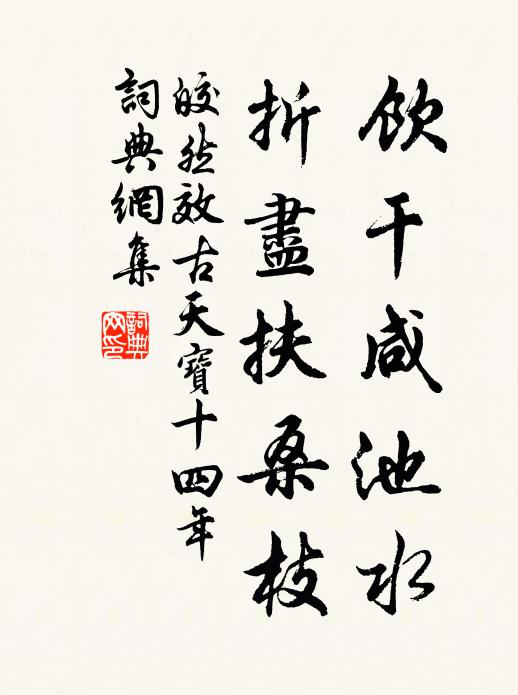 饮干咸池水
折盡扶桑枝
皎然效古天寶十四年
詞典網集
詞典网印